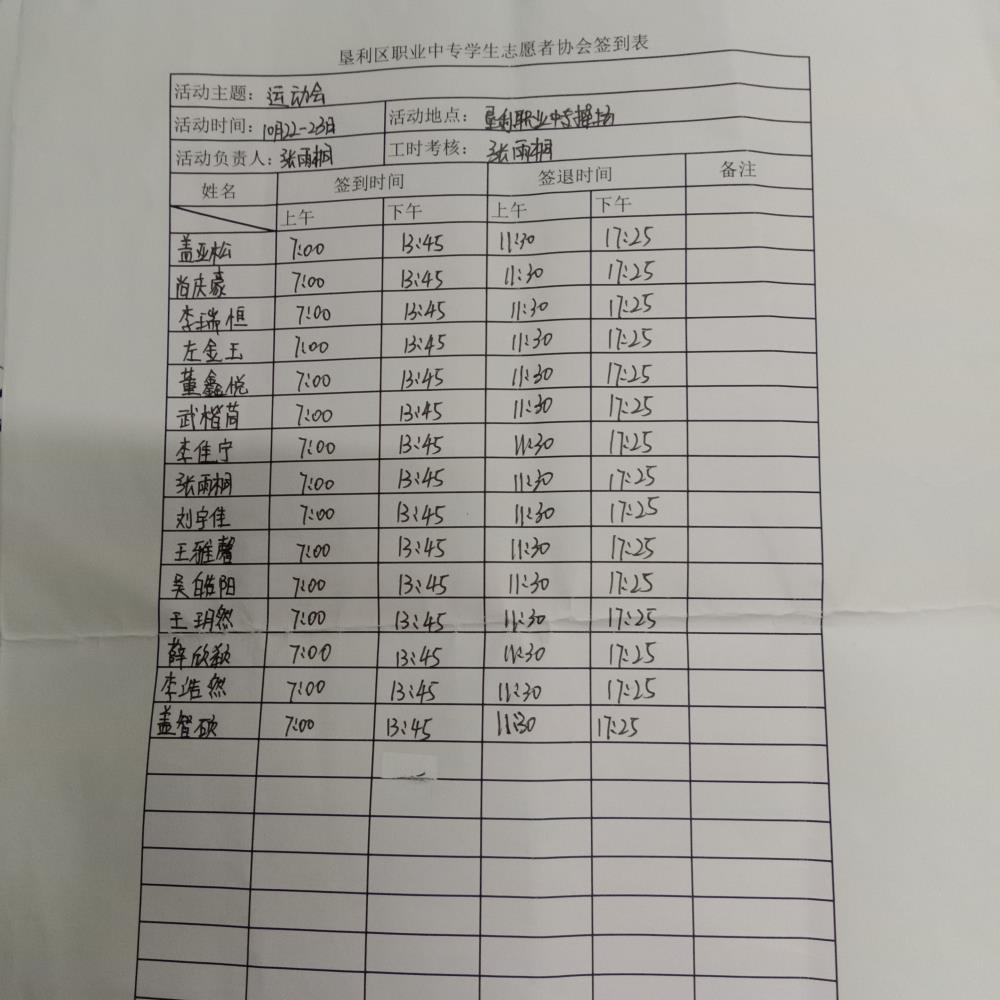 垦利区职业中专学生志愿者协会签到表
活动主题：运动会
活动时间：10月22-23日 活动地点：垦利职业中专操场
活动负责人：张雨桐 工时考核：张雨桐
姓名 签到时间 签退时间 备注
上午 下午 上午 下午
盖亚松 7:00 13:45 11:30 17:25
尚庆豪 7:00 13:45 11:30 17:25
李瑞恒 7:00 13:45 11:30 17:25
左金玉 7:00 13:45 11:30 17:25
董鑫悦 7:00 13:45 11:30 17:25
武楷茼 7:00 13:45 11:30 17:25
李佳宁 7:00 13:45 11:30 17:25
张雨桐 7:00 13:45 11:30 17:25
刘宇佳 7:00 13:45 11:30 17:25
王雅馨 7:00 13:45 11:30 17:25
吴皓阳 7:00 13:45 11:30 17:25
王玥然 7:00 13:45 11:30 17:25
薛欣颖 7:00 13:45 11:30 17:25
李浩然 7:00 13:45 11:30 17:25
盖智硕 7:00 13:45 11:30 17:25